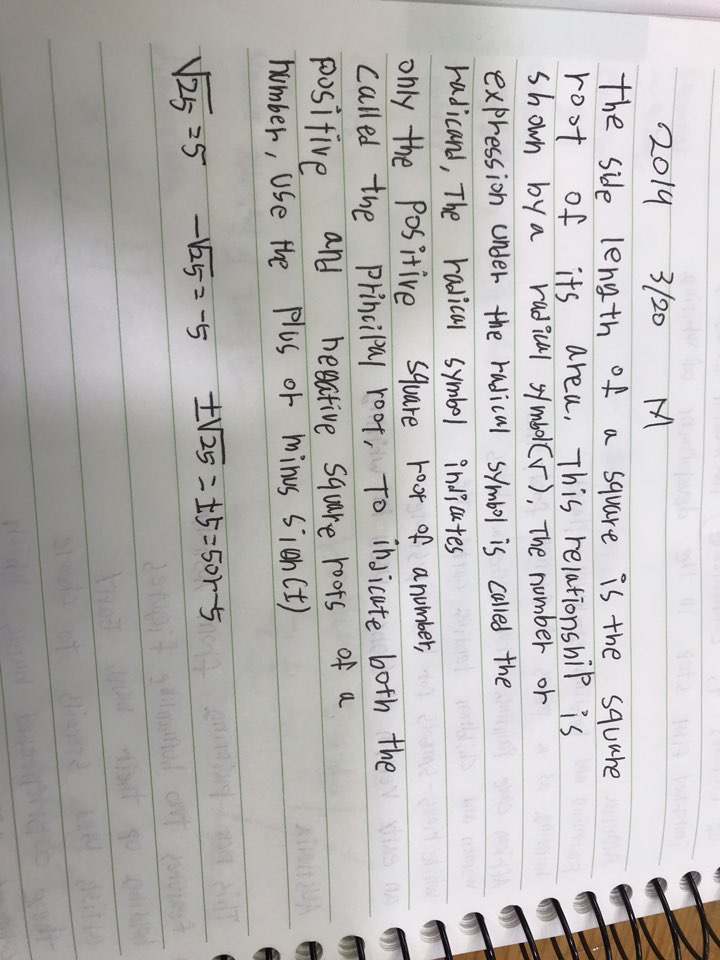 2019 3/20 M
The side length of a square is the square
root of its area. This relationship is
shown by a radical symbol(√). The number or
expression under the radical symbol is called the
radicand, The radical symbol indicates
only the positive square root of a number,
called the principal root, To indicate both the
positive and negative square roots of a
number, use the plus or minus sign(±)
√25 = 5 -√25 = -5 ±√25 = ±5 = 5 or -5